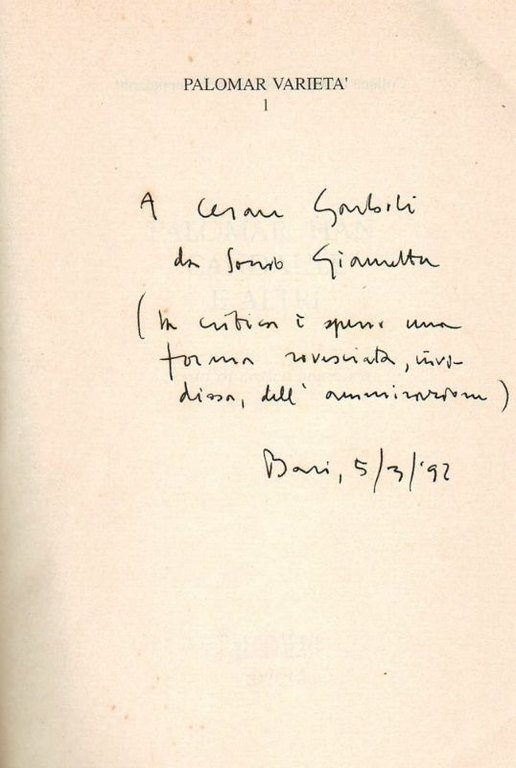 PALOMAR VARIETA'
1
A Cesare Garboli
da Sossio Giametta
(la critica è spesso una
forma rovesciata, invi-
diosa, dell'ammirazione)
Bari, 5/3/'92
PALOMAR, HAN
E ALTRI